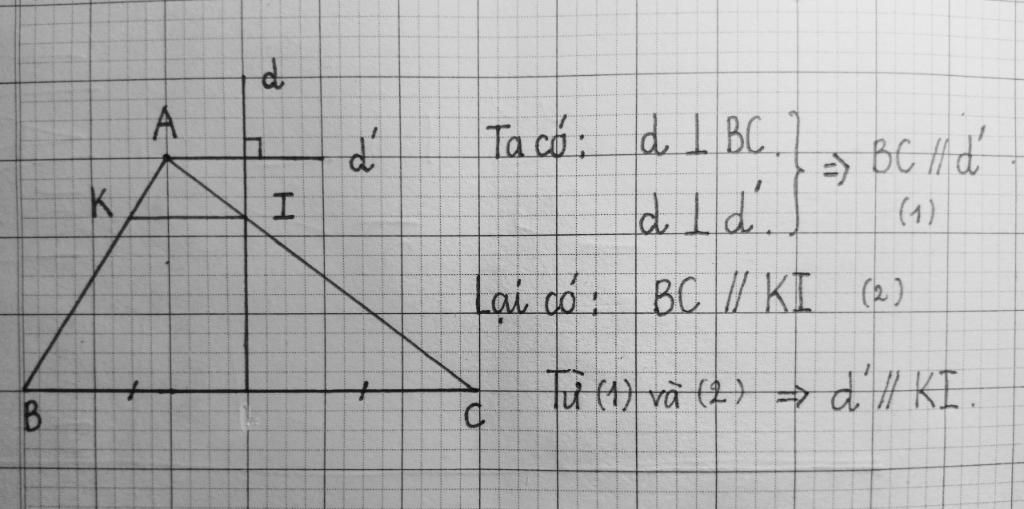 d
A
d'
K
I
B
C
Ta có: d ⊥ BC. } ⇒ BC // d'
d ⊥ d'. (1)
Lại có: BC // KI (2)
Từ (1) và (2) ⇒ d' // KI.